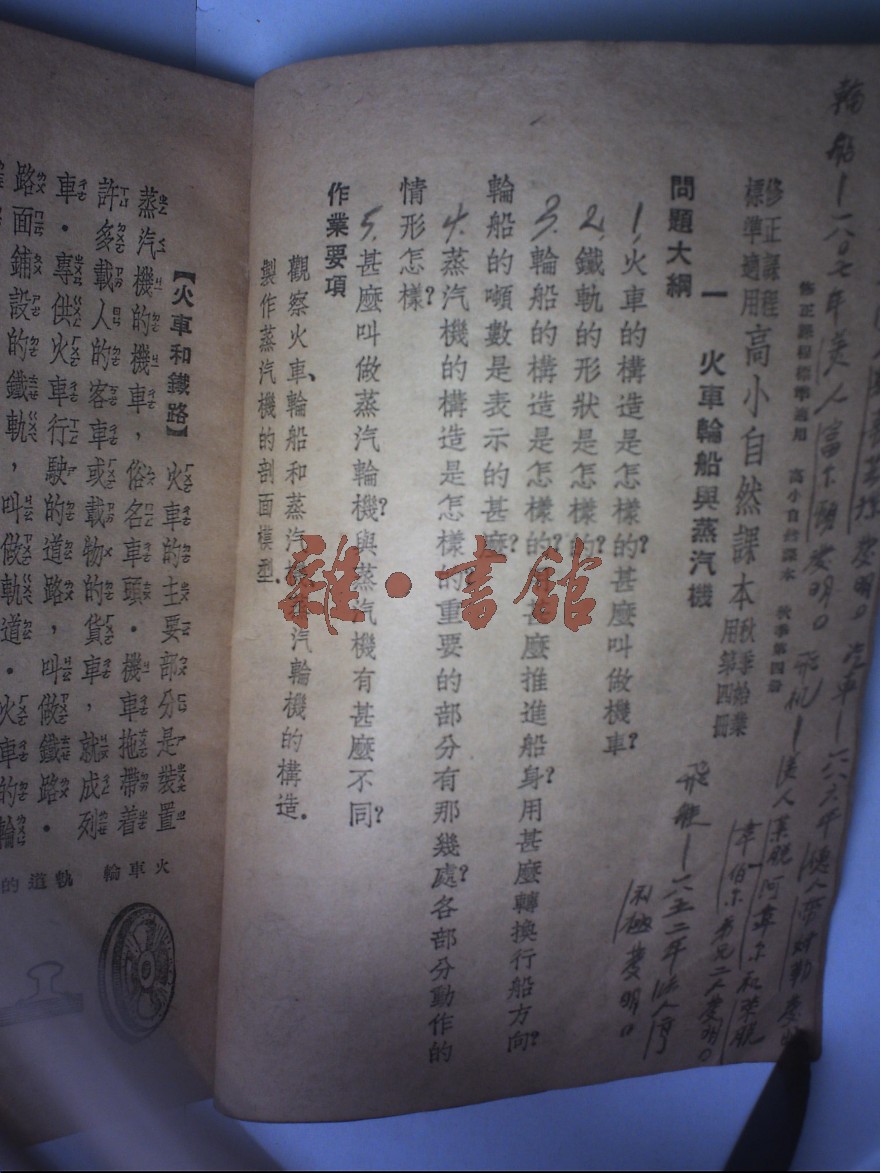 輪船一八〇七年美人富
修正課程標準適用 高小自然課本 秋季第四冊
修正課程
標準適用
高小自然課本
秋季始業
用第四冊
一 火車輪船與蒸汽機
問題大綱
1.火車的構造是怎樣的?甚麼叫做機車?
2.鐵軌的形狀是怎樣的?
3.輪船的構造是怎樣的?甚麼推進船身?用甚麼轉換行船方向?
輪船的噸數是表示的甚麼?
4.蒸汽機的構造是怎樣的?重要的部分有那幾處?各部分動作的
情形怎樣?
5.甚麼叫做蒸汽輪機?與蒸汽機有甚麼不同?
作業要項
觀察火車、輪船和蒸汽機、汽輪機的構造.
製作蒸汽機的剖面模型.
飛艇一八五二年法人
發明
韋伯尔弟兄二人發明
雜·書館
【火車和鐵路】 火車的主要部分是裝置
蒸汽機的機車,俗名車頭.機車拖帶着
許多載人的客車或載物的貨車,就成列
車.專供火車行駛的道路,叫做鐵路.
路面鋪設的鐵軌,叫做軌道.火車的輪
火車輪
軌道的